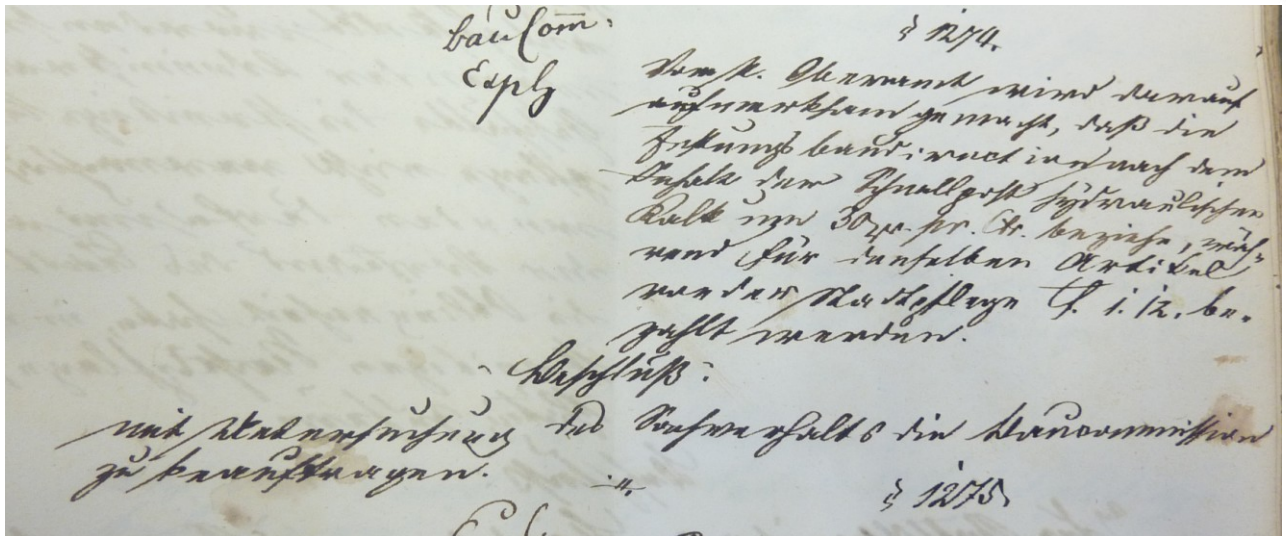 BauComm:
Exph
§ 1274.
Vom K. Oberamt wird darauf
aufmerksam gemacht, daß die
Festungsbaudirection nach dem
Inhalt der Schnellpost hydraulischen
Kalk um 30 xr. pr. Ctr. beziehe, wäh-
rend für denselben Artikel
von der Stadtpflege f. 1. 12. be-
zahlt werden.
Beschluß:
mit Untersuchung des Sachverhalts die Baucommission
zu beauftragen.
§ 1275.